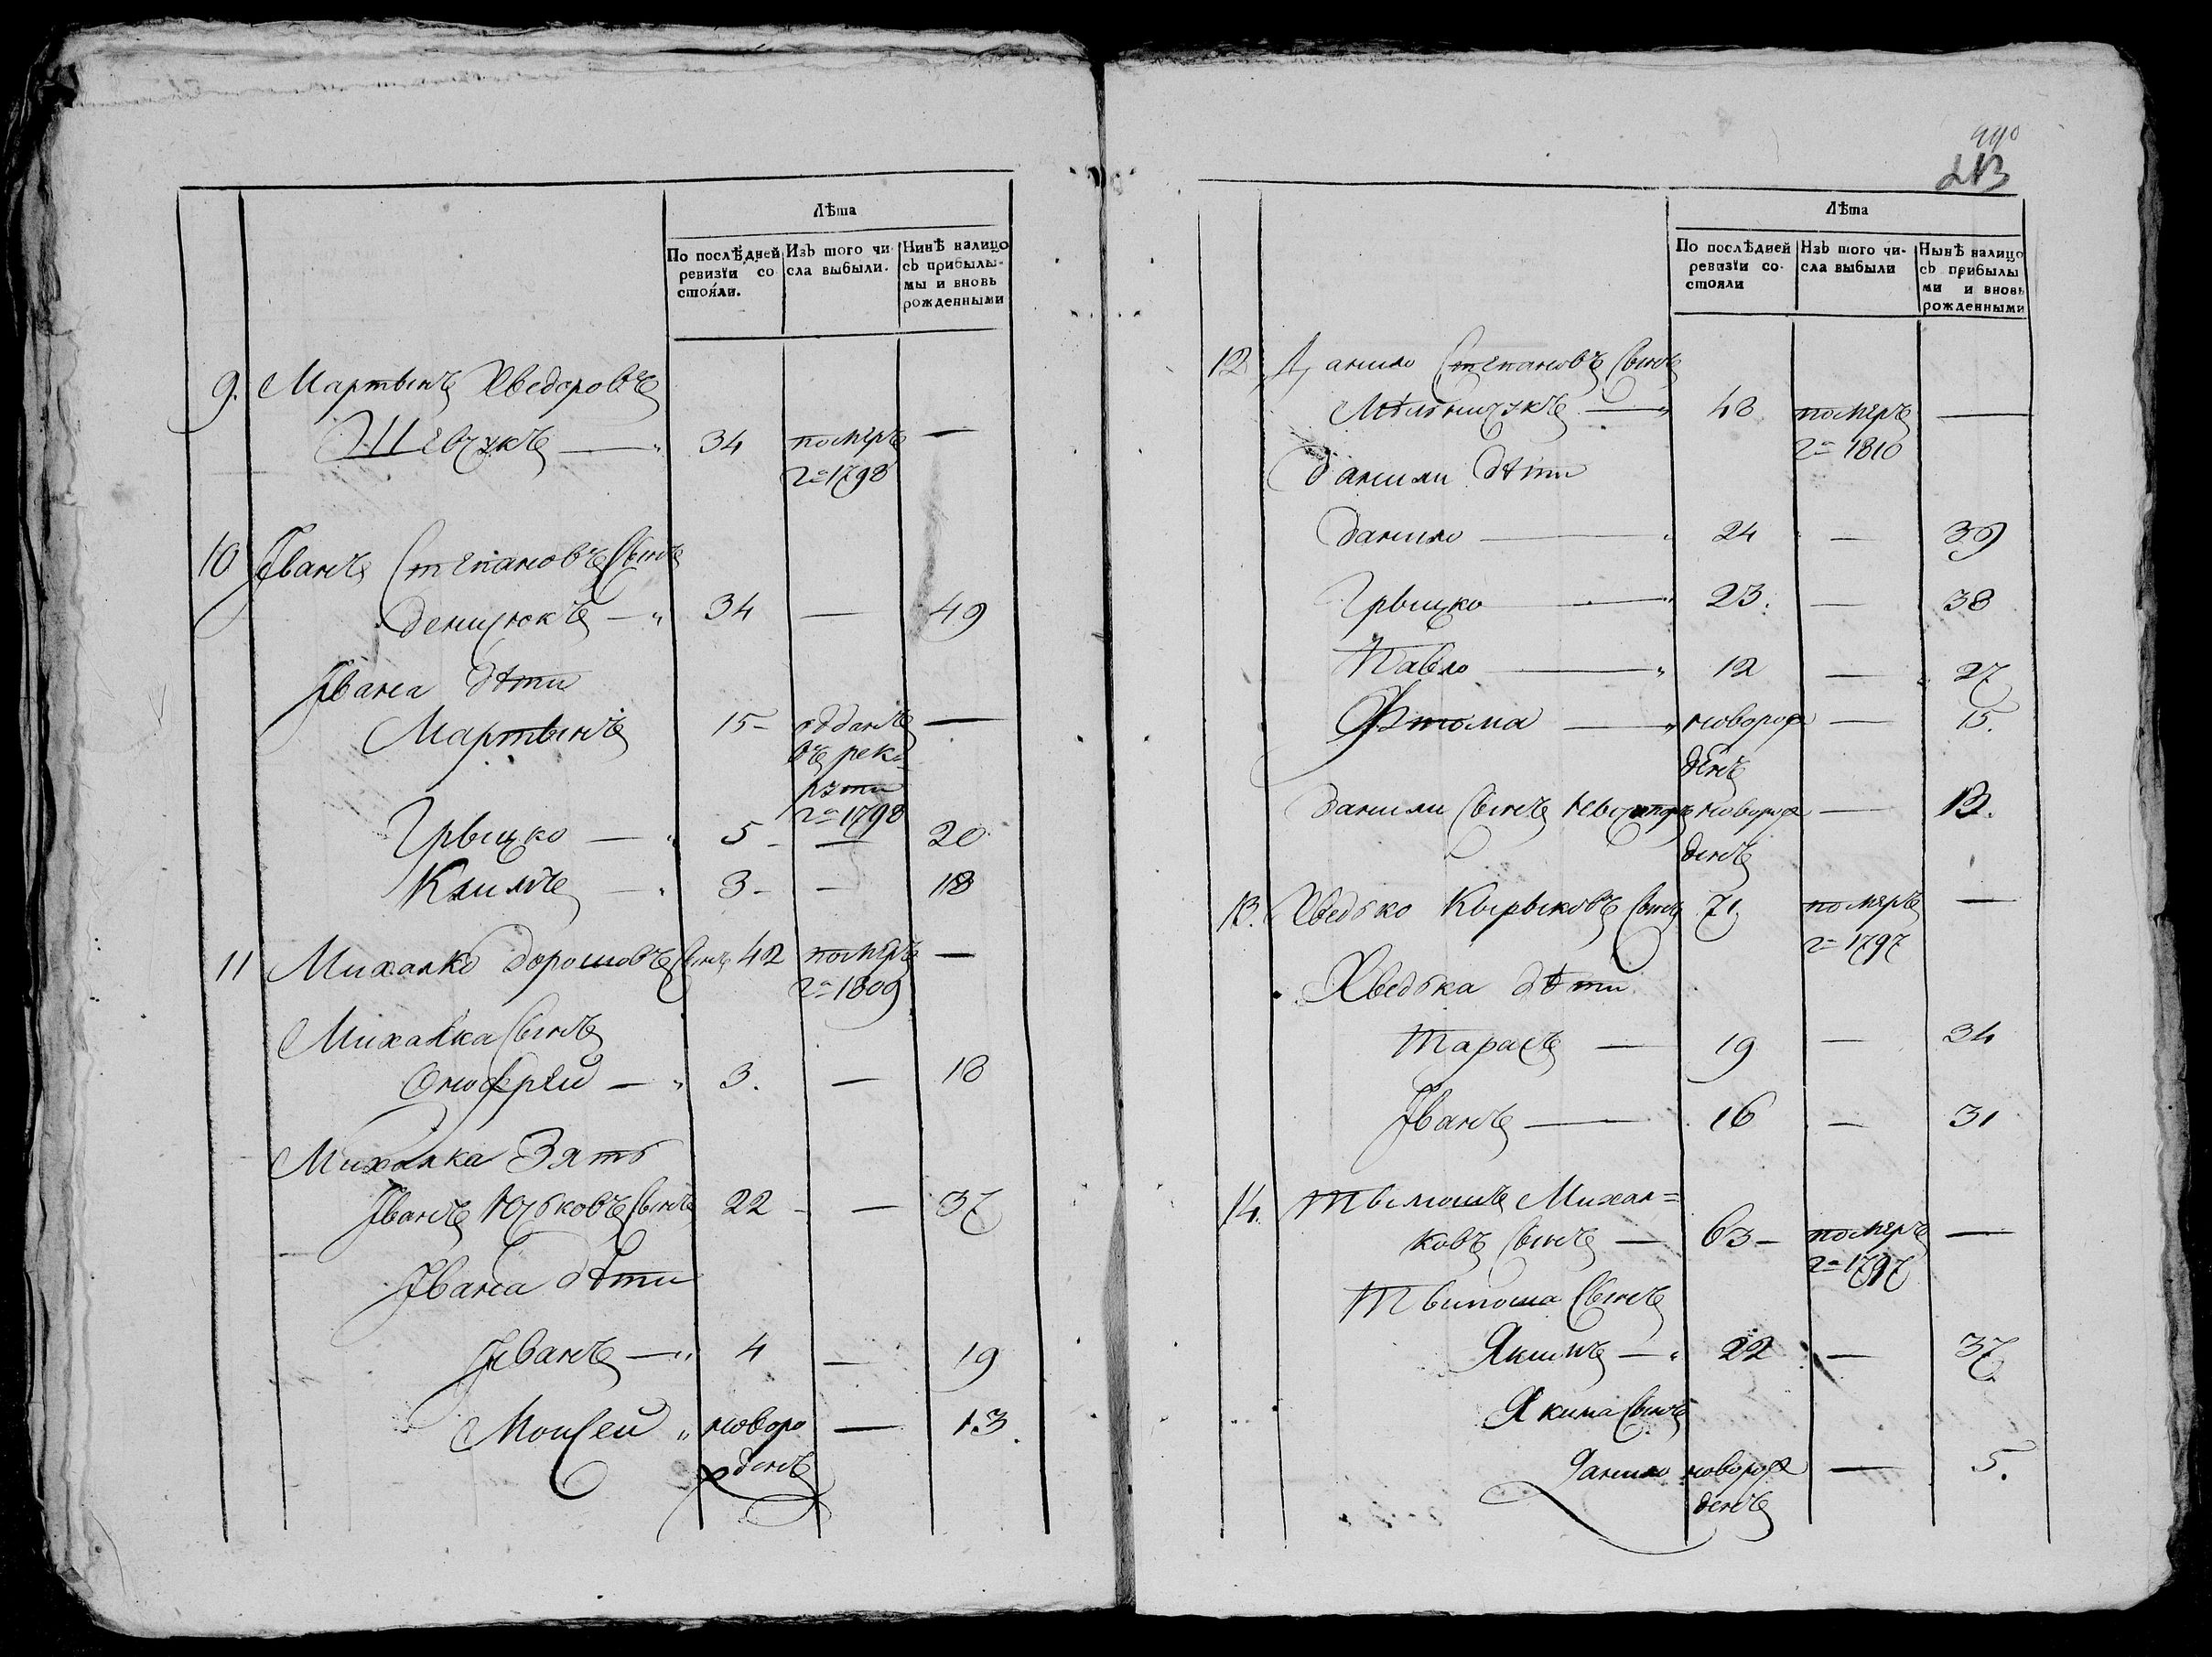 Лѣта
По послѣдней ревизїи состояли.
Изъ того числа выбыли.
Нинѣ налицо съ прибылымы и вновь рожденными
9. Мартынъ Хведоровъ
Шевчукъ — 34 померъ —
га 1798
10 Іванъ Степановъ Сынъ
Денисюкъ — 34 — 49
Івана дѣти
Мартынъ 15 - отданъ —
въ рек-
руты
га 1798
Грыцко — 5 - — 20
Климъ — 3 - — 18
11 Михалко Дорошовъ Сынъ 42 померъ —
га 1809
Михалка Сынъ
Онофрей — 3. — 18
Михалка Зять
Іванъ Юськовъ Сынъ 22 - — 37
Івана дѣти
Іванъ — 4 — 19
Моисей новоро — 13.
жденъ
440
213
Лѣта
По послѣдней ревизїи состояли
Изъ того числа выбыли
Нынѣ налицо съ прибылыми и вновь рожденными
12 Данило Степановъ Сынъ
Мѣльничукъ — 48 померъ —
га 1810
Данили дѣти
Данило — 24 — 39
Грыцко — 23. — 38
Павло — 12 — 27
Хтома — новорож — 15.
денъ
Данили Сынъ новорож — 13.
денъ
13. Хведько Кырыковъ Сынъ 71 померъ —
га 1797
Хведька дѣти
Тарасъ — 19 — 34
Іванъ — 16 — 31
14. Тымошъ Михал=
ковъ Сынъ — 63 - померъ —
га 1797
Тымоша Сынъ
Якимъ — 22 — 37
Якима Сынъ
Данило новорож — 5.
денъ